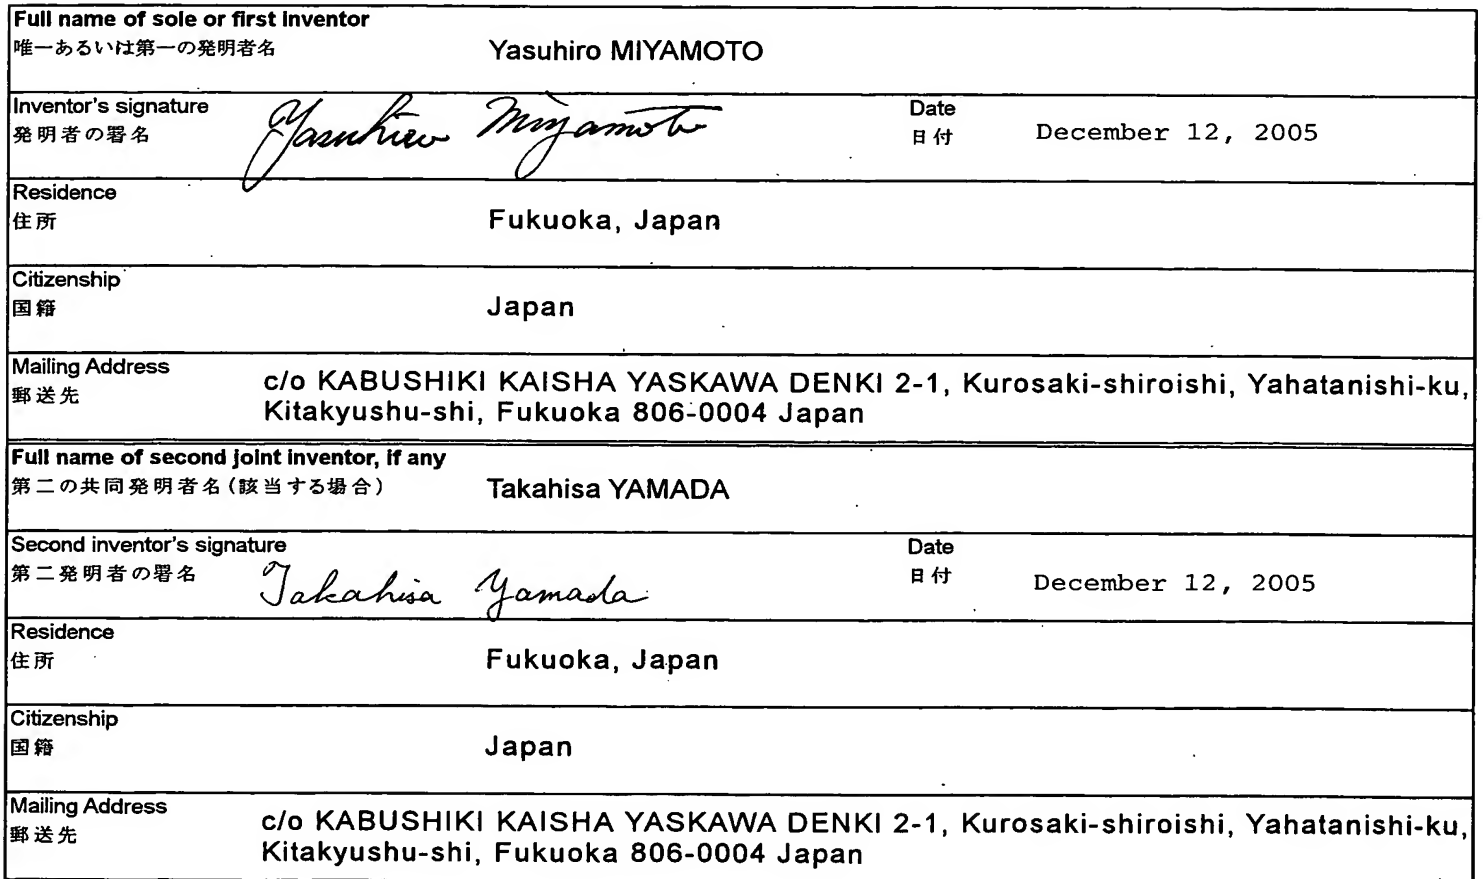 Full name of sole or first inventor
唯一あるいは第一の発明者名 Yasuhiro MIYAMOTO
Inventor's signature Date
発明者の署名 Yasuhiro Miyamoto 日付 December 12, 2005
Residence
住所 Fukuoka, Japan
Citizenship
国籍 Japan
Mailing Address
郵送先 c/o KABUSHIKI KAISHA YASKAWA DENKI 2-1, Kurosaki-shiroishi, Yahatanishi-ku,
Kitakyushu-shi, Fukuoka 806-0004 Japan
Full name of second joint inventor, if any
第二の共同発明者名(該当する場合) Takahisa YAMADA
Second inventor's signature Date
第二発明者の署名 Takahisa Yamada 日付 December 12, 2005
Residence
住所 Fukuoka, Japan
Citizenship
国籍 Japan
Mailing Address
郵送先 c/o KABUSHIKI KAISHA YASKAWA DENKI 2-1, Kurosaki-shiroishi, Yahatanishi-ku,
Kitakyushu-shi, Fukuoka 806-0004 Japan